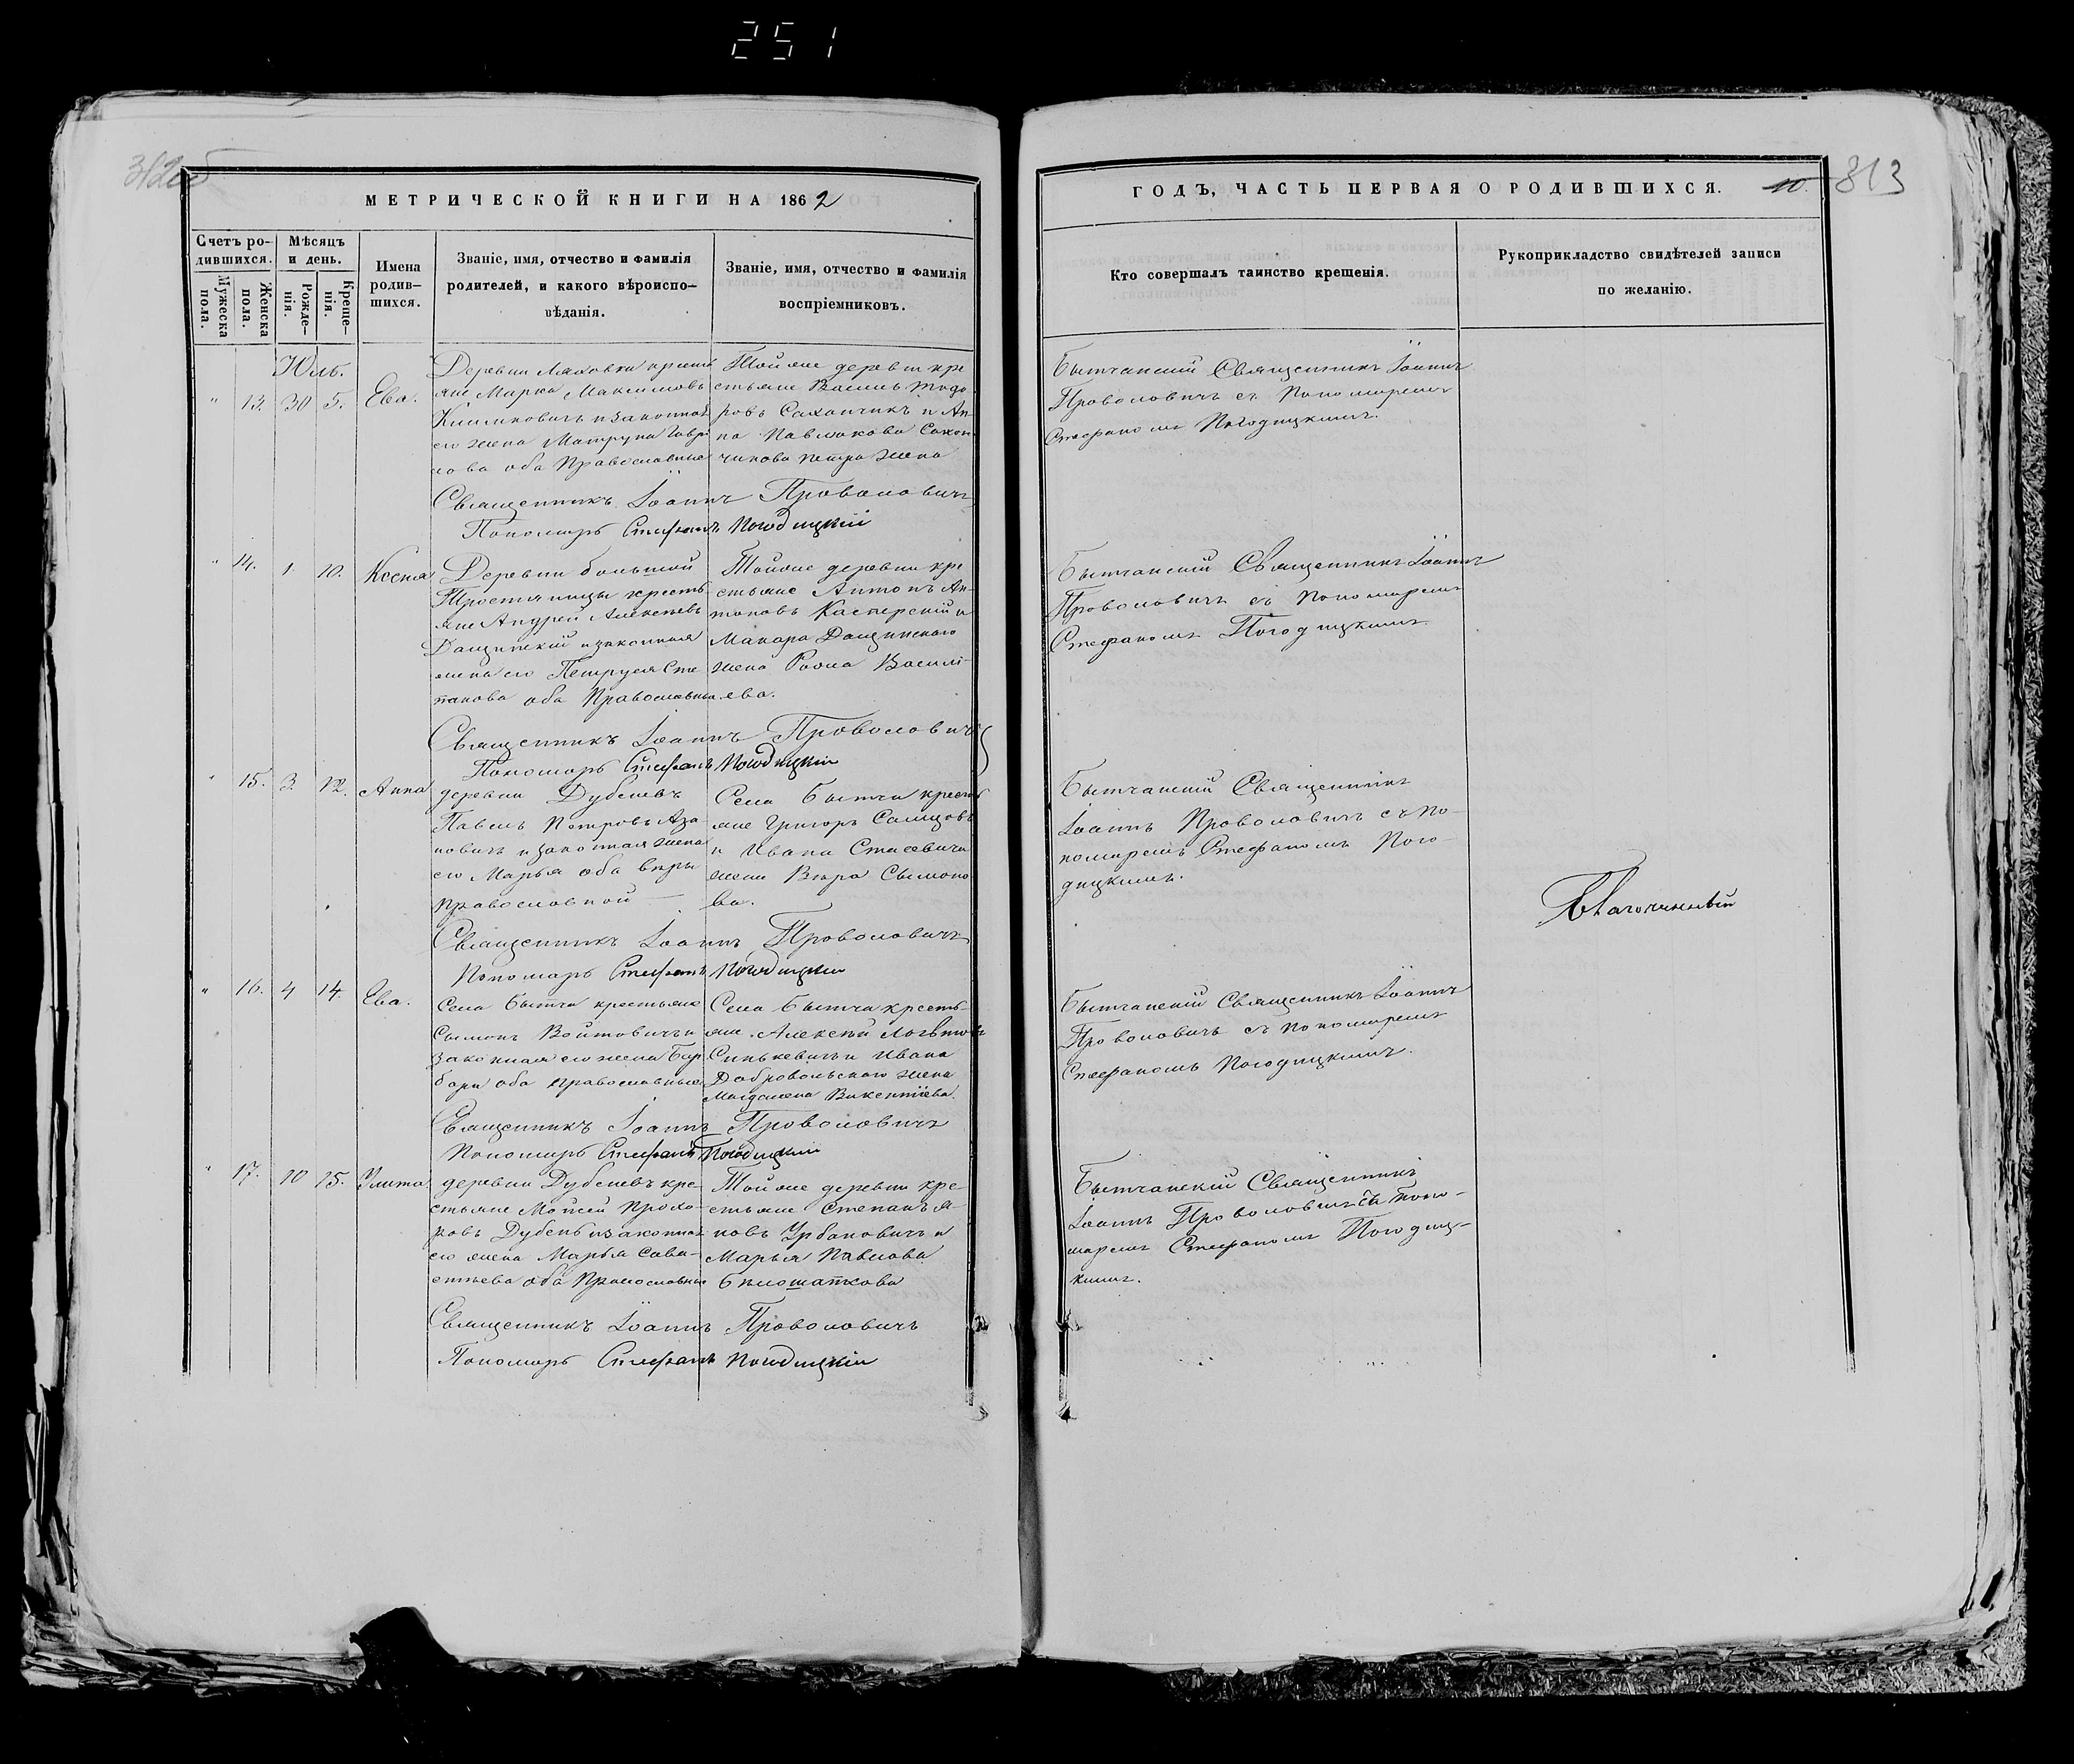 251
312об
МЕТРИЧЕСКОЙ КНИГИ НА 1862
Счетъ ро-
дившихся.
Мужеска
пола.
Женска
пола.
Мѣсяцъ
и день.
Рожде-
нія.
Креще-
нія.
Имена
родив-
шихся.
Званіе, имя, отчество и фамилія
родителей, и какого вѣроиспо-
вѣданія.
Званіе, имя, отчество и фамилія
воспріемниковъ.
Юль.
" 13. 30 5. Ева.
Деревни Ляховки кресть
яне Марка Максимовъ
Климковичъ и законная
его жена Матруна Гаври
лова оба Православные
Тойже деревни кре
стьяне Василь Тодо
ровъ Сахончикъ и Ан-
на Павлюкова Сахон
чикова Петра жена
Священникъ Іоаннъ Проволовичъ
Пономарь Стефанъ Погодицкій
" 14. 1 10. Ксенія
Деревни большой
Тростяницы кресть
яне Андрей Алексѣевъ
Дащинскій и законная
жена его Петруся Сте
панова оба Православные
Тойже деревни кре
стьяне Антонъ Ан-
тоновъ Касперскій и
Макара Дащинскаго
жена Роона Василі-
ева.
Священникъ Іоаннъ Проволовичъ
Пономарь Стефанъ Погодицкій
" 15. 3. 12. Анна
деревни Дубеневъ
Павелъ Петровъ Аза-
новичъ и законная жена
его Марья оба вѣры
православной
Села Бытчи кресть
яне Григоръ Самцовъ
и Ивана Стасевича
жена Вѣра Сымоно
ва.
Священникъ Іоаннъ Проволовичъ
Пономарь Стефанъ Погодицкій
" 16. 4 14. Ева.
Села Бытчи крестьяне
Сымонъ Войтовичъ и
законная его жена Бар
бара оба православные
Села Бытча кресть-
яне Алексѣй Логвиновъ
Синькевичъ и Ивана
Добровольскаго жена
Магдалена Викентіева.
Священникъ Іоаннъ Проволовичъ
Пономарь Стефанъ Погодицкій
" 17. 10 15. Улита
деревни Дубеневъ кре-
стьяне Мойсей Прохо-
ровъ Дубень и законная
его жена Марья Сава-
стьева оба Православные
Тойже деревни кре-
стьяне Степанъ Я-
новъ Урбановичъ и
Марья Павлова
Бѣлошапкова
Священникъ Іоаннъ Проволовичъ
Пономарь Стефанъ Погодицкій
ГОДЪ, ЧАСТЬ ПЕРВАЯ О РОДИВШИХСЯ.
10.
313
Кто совершалъ таинство крещенія.
Рукоприкладство свидѣтелей записи
по желанію.
Бытчанскій Священникъ Іоаннъ
Проволовичъ съ Пономаремъ
Стефаномъ Погодицкимъ.
Бытчанскій Священникъ Іоаннъ
Проволовичъ съ Пономаремъ
Стефаномъ Погодицкимъ.
Бытчанскій Священникъ
Іоаннъ Проволовичъ съ По-
номаремъ Стефаномъ Пого-
дицкимъ.
Благочинный
Бытчанскій Священникъ Іоаннъ
Проволовичъ съ Пономаремъ
Стефаномъ Погодицкимъ.
Бытчанскій Священникъ
Іоаннъ Проволовичъ съ Поно-
маремъ Стефаномъ Погодиц-
кимъ.